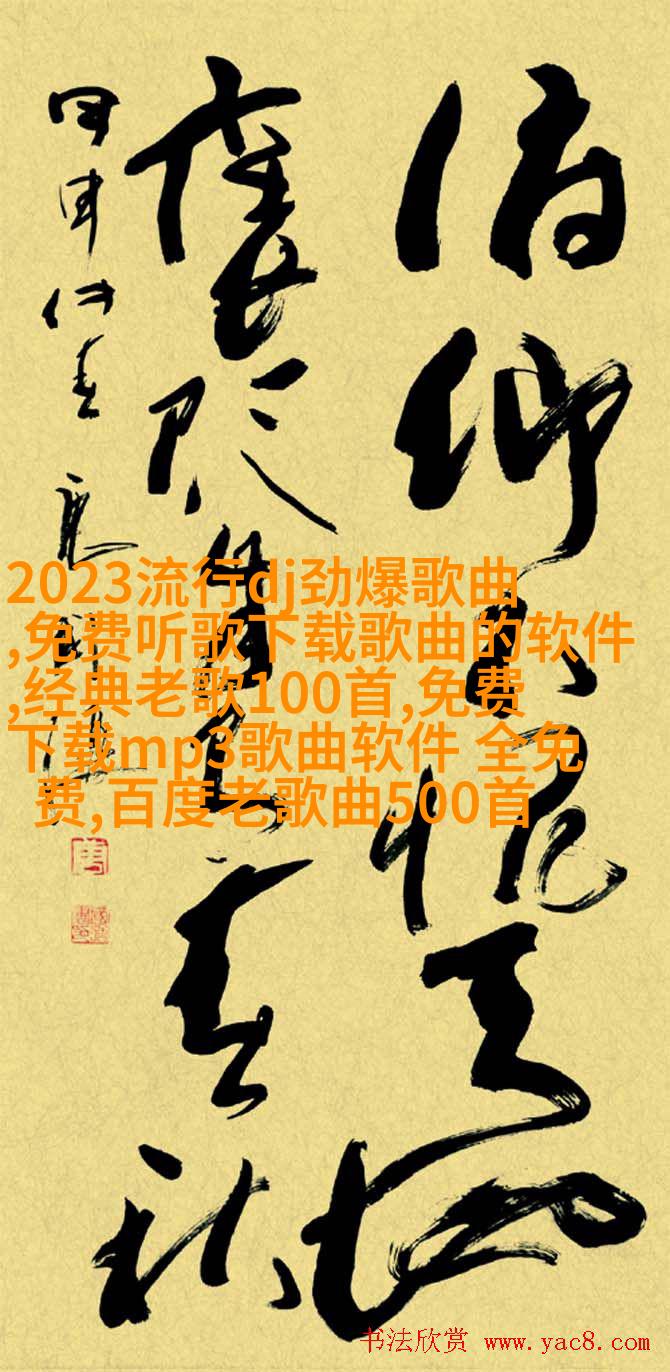 俯仰愧天地
褒貶自春秋
仲春
2023流行dj劲爆歌曲
,免费听歌下载歌曲的软件
,经典老歌100首,免费
下载mp3歌曲软件 全免
费,百度老歌曲500首
书法欣赏 www.yac8.com